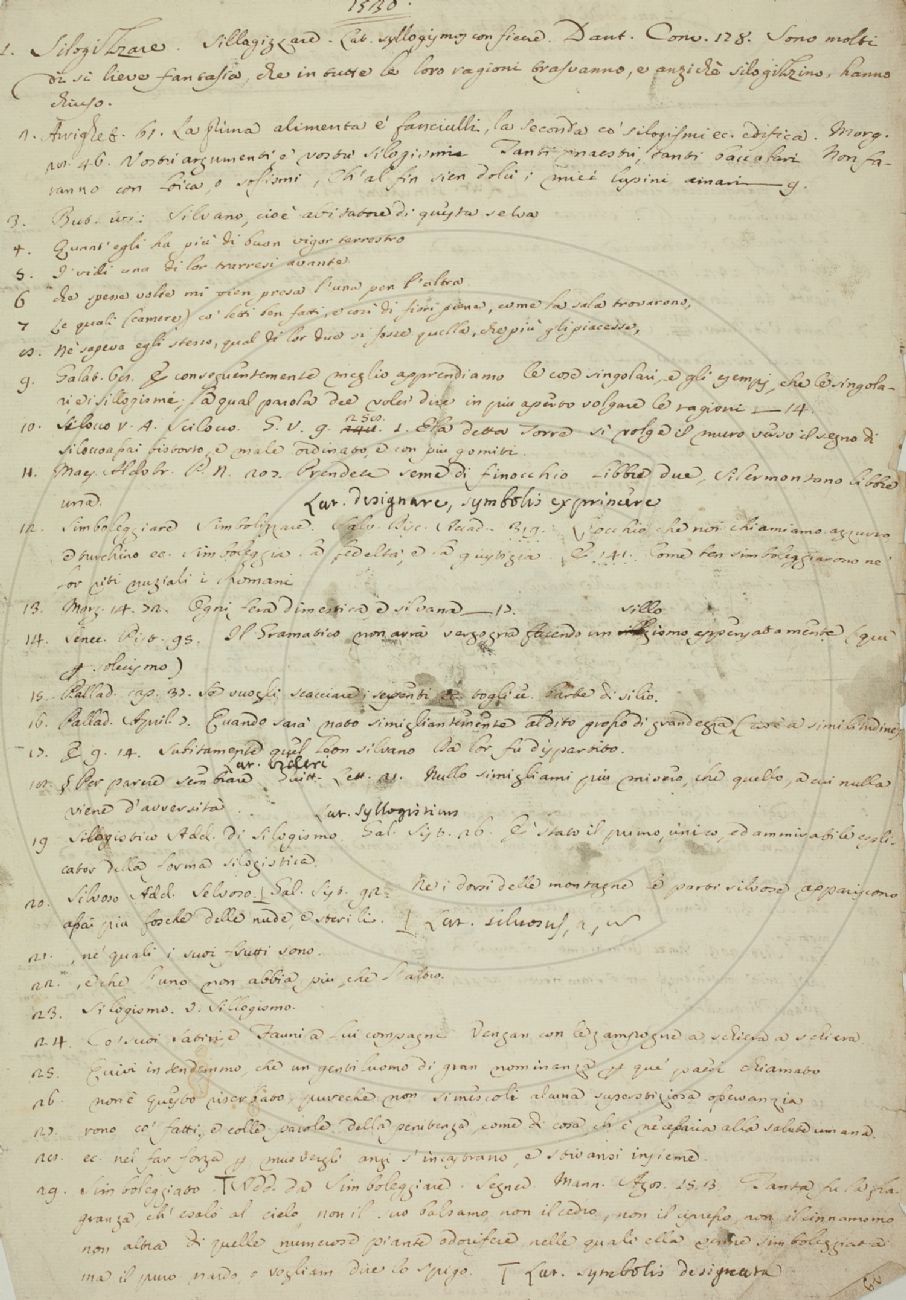 1530.
1. Silogizzare. Sillagizzare. Lat. syllogismos conficere. Dant. Conv. 178. Sono molti
di sì lieve fantasia, che in tutte le loro ragioni trasvanno, e anzichè silogizzino, hanno
chiuso.
2. Arrighet. 61. La prima alimenta e' fanciulli, la seconda co' silogismi ec. edifica. Morg.
Vostri argumenti e vostri silogismi Tanti maestri, tanti baccellari Non fa-
ranno con loica o sofismi, Ch'al fin sien dolci i miei lupini amari — 9.
3. Silvano, cioè abitatore di questa selva
4. Quant'egli ha più di buon vigor terrestro
5. I' vidi una di lor trarresi avante
6 che spesse volte mi vien presa l'una per l'altra
7 Le quali (camere) co' letti ben fatti, e così di fiori piena, come la sala trovarono,
8. Nè sapeva egli stesso, qual di lor due si fosse quella, che più gli piacesse,
9. Galat. 61. E conseguentemente meglio apprendiamo le cose singolari, e gli esempj, che le singola-
ri, e i sillogismi; la qual parola dee voler dire in più aperto volgare le ragioni — 14.
10. Siloco v. A. Scilocco. G. V. 9. 1. Alla detta Torre si volge il muro verso il segno di
silocco assai bistorto, e male ordinato, e con più gomiti.
11. Maes. Aldobr. P. N. 207. Prendete seme di finocchio libbre due, silermontano libbre
una. Lat. designare, symbolis exprimere
12. Simboleggiare Simbolizzare. Salv. Disc. Accad. 319. L'occhio che noi chiamiamo azzurro
e turchino ec. simboleggia la fedeltà, e la giustizia E 141. Come ben simboleggiarono ne'
lor riti nuziali i Romani
13. Morg. 14. 72. Ogni fera dimestica e silvana — 17. sillo
14. Senec. Pist. 95. Il Gramatico non avrà vergogna facendo un gismo appensatamente (qui
p solecismo)
15. Pallad. cap. 37. Se vuogli scacciare i serpenti ec. togli barbe di silio.
16. Pallad. April. 7. Quando sarà nato simigliantemente al dito grosso di grandezza (cioè a similitudine)
17. E 9. 14. Subitamente quel leon silvano Da lor fu dispartito.
Lat. videri
18. § Per parere sembiare Guitt. Lett. 21. Nullo simigliami più misero, che quello, a cui nulla
viene d'avversità. Lat. syllogisticus
19 Sillogistico Add. di Silogismo Gal. Sist. 26. E' stato il primo, unico, ed ammirabile espli-
cator della forma silogistica.
20. Silvoso Add. Selvoso. Gal. Sist. 92. Nè i dorsi delle montagne le parti silvose appariscono
assai più fosche delle nude, e sterili. Lat. silvosus, a, um
21. , ne' quali i suoi frutti sono.
22. , e che l'uno non abbia più, che l'altro.
23. Silogismo. v. Sillogismo.
24. Co' suoi satiri, e Fauni a lui compagni Vengan con le zampogne a schiera a schiera
25. Quivi intendemmo, che un gentiluomo di gran nominanza p que' paesi chiamato
26. non è questo riserbato, pureche non si mescoli alcuna superstiziosa osservanzia
27. rono co' fatti, e colle parole della penitenza, come di cosa ch'è necessaria alla salute umana.
28. ec. nel far forza p muovergli anzi s'incastrano, e stivansi insieme.
29. Simboleggiato. Add. da Simboleggiare. Segner. Mann. Agos. 15. 13. Tanta fu la fra-
granza, ch'esalò al cielo, non il suo balsamo, non il cedro, non il cipresso, non il cinnamomo
non altra di quelle numerose piante odorifere, nelle quali ella venne simboleggiata
ma il puro nardo, o vogliam dire lo spigo. Lat. symbolis designata